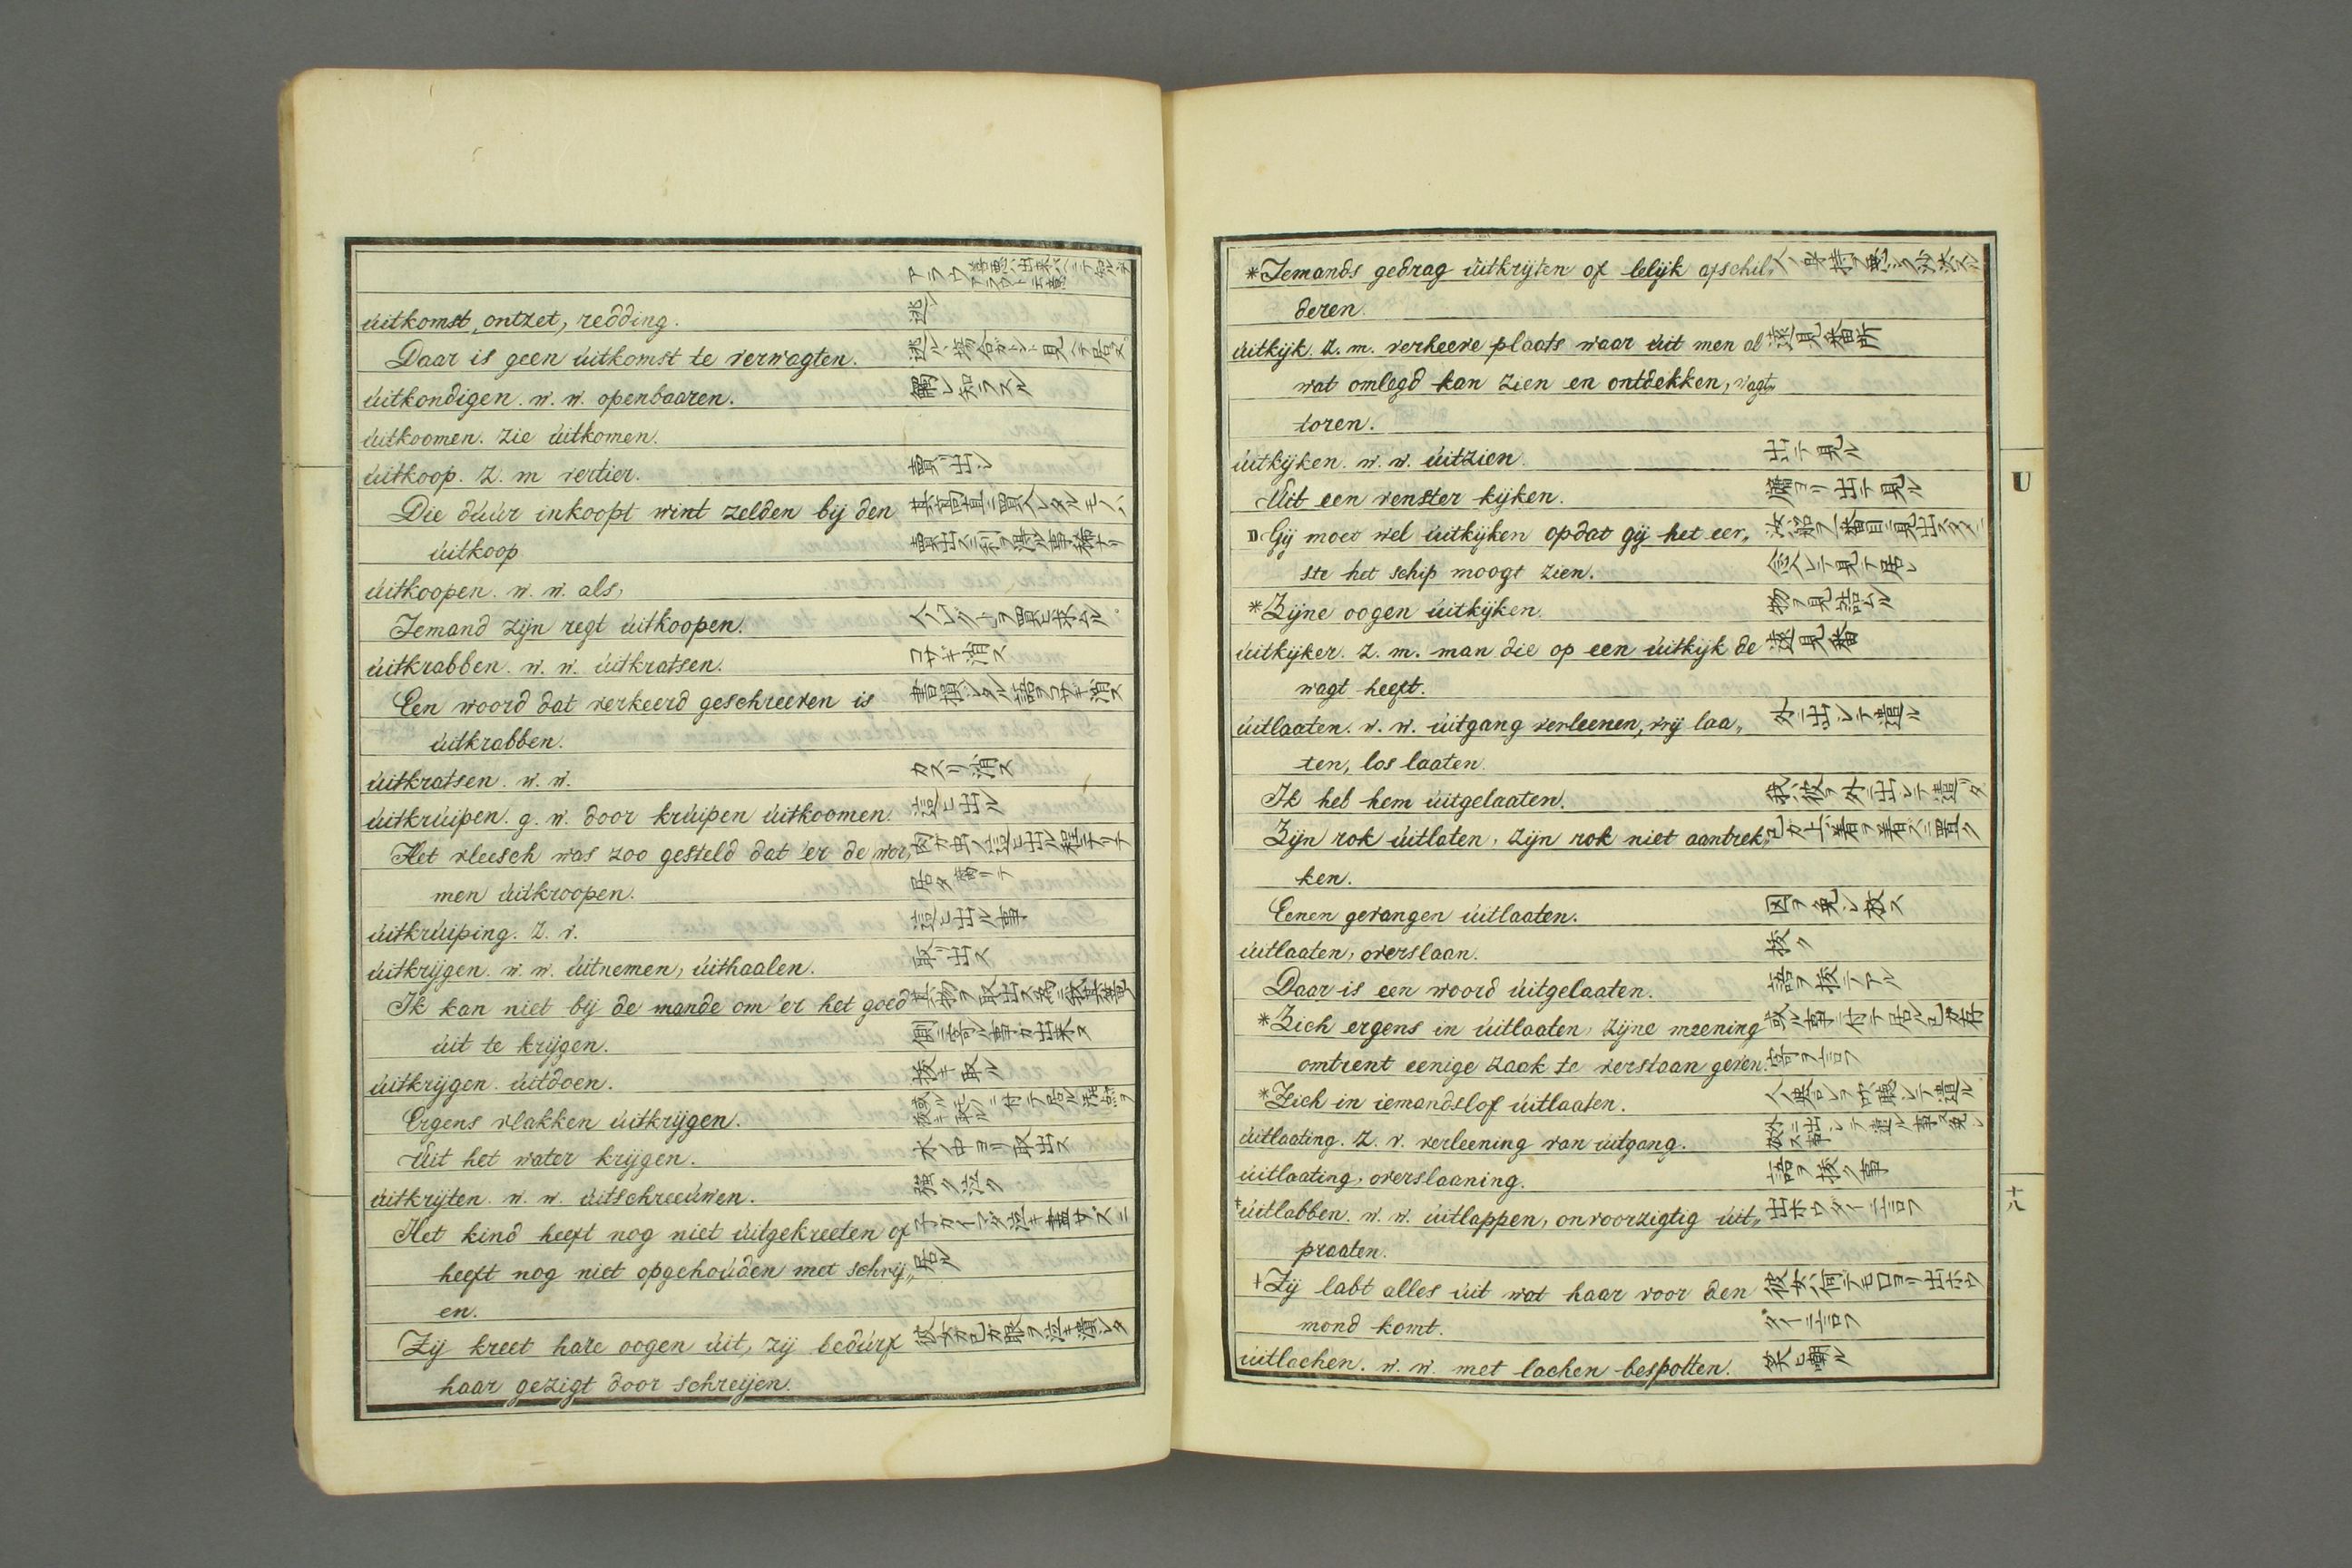 uitkomst, ontzet, redding. 逃レ
Daar is geen uitkomst te verwagten.
uitkondigen. w. w. openbaaren. 觸レ知ラスル
uitkoomen. zie uitkomen.
uitkoop. z. m vertier. 賣リ出シ
Die duur inkoopt wint zelden bij den
uitkoop
uitkoopen. w. w. als,
Iemand zijn regt uitkoopen.
uitkrabben. w. w. uitkratsen. コサギ消ス
Een woord dat verkeerd geschreeven is
uitkrabben.
uitkratsen. w. w. カスリ消ス
uitkruipen. g. w. door kruipen uitkoomen. 這ヒ出ル
Het vleesch was zoo gesteld dat 'er de wor„
men uitkroopen.
uitkruiping. z. v. 這ヒ出ル事
uitkrijgen. w. w. uitnemen, uithaalen. 取リ出ス
Ik kan niet bij de mande om 'er het goed
uit te krijgen.
uitkrijgen. uitdoen. 抜キ取ル
Ergens vlakken uitkrijgen.
Uit het water krijgen. 水ノ中ヨリ取出ス
uitkrijten. w. w. uitschreeuwen. 強ク泣ク
Het kind heeft nog niet uitgekreeten of
heeft nog niet opgehouden met schrij„ 居ル
en.
Zij kreet hare oogen uit, zij bedurf
haar gezigt door schreijen.
*Iemands gedrag uitkrijten of lelijk afschil„
deren.
uitkijk. z. m. verheeve plaats waar uit men al 遠見番所
wat omlegd kan zien en ontdekken, wagt„
toren.
uitkijken. w. w. uitzien. 出テ見ル
Uit een venster kijken. 窓ヨリ出テ見ル
Gij moet wel uitkijken opdat gij het eer„
ste het schip moogt zien. 念入レテ見テ居レ
*Zijne oogen uitkijken. 物ヲ見詰ムル
uitkijker. z. m. man die op een uitkijk de 遠見番
wagt heeft.
uitlaaten. w. w. uitgang verleenen, vrij laa„ 外ニ出シテ遣ル
ten, los laaten.
Ik heb hem uitgelaaten. 我彼ヲ外ニ出シテ遣ツタ
Zijn rok uitlaten, zijn rok niet aantrek„
ken.
Eenen gevangen uitlaaten. 囚ヲ免シ放ス
uitlaaten, overslaan. 抜ク
Daar is een woord uitgelaaten. 語ヲ抜テアル
*Zich ergens in uitlaaten, zijne meening
omtrent eenige zaak te verstaan geven.
*Zich in iemands lof uitlaaten.
uitlaating. z. v. verleening van uitgang.
uitlaating, overslaaning. 語ヲ抜ク事
+uitlabben. w. w. uitlappen, onvoorzigtig uit„ 出ホウダイニ言フ
praaten.
+Zij labt alles uit wat haar voor den 彼女ハ何デモ口ヨリ出ホウ
mond komt. ダイニ言フ
uitlachen. w. w. met lachen bespotten. 笑ヒ嘲ル
U
六十